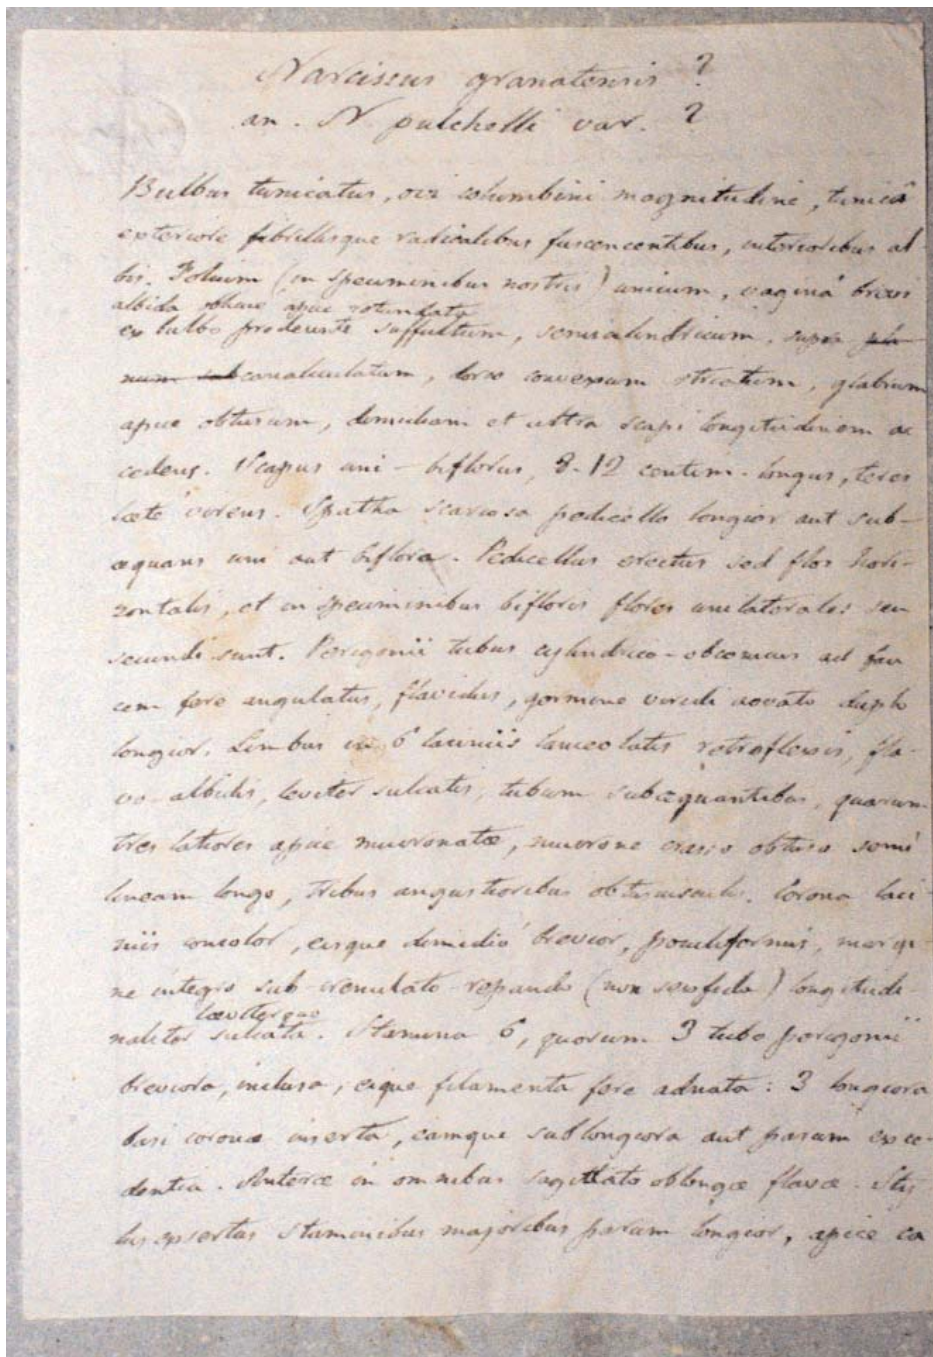 Narcissus granatensis?
an. N. pulchelli var.?
Bulbus tunicatus, ovi columbini magnitudine, tunicâ
exteriore fibrillisque radicalibus fuscescentibus, interioribus al-
bis. Folium (in speciminibus nostris) unicum, vaginâ brevi
albida obtuse apice rotundata
ex bulbo prodeunte suffultum, semicylindricum, supra pla-
num sub canaliculatum, dorso convexum striatum, glabrum
apice obtusum, dimidiam et ultra scapi longitudinem ac
cedens. Scapus uni-biflorus, 8-12 centim. longus, teres
læte virens. Spatha scariosa pedicello longior aut sub-
æquans uni aut biflora. Pedicellus erectus sed flos hori-
zontalis, et in speciminibus bifloris flores unilaterales seu
secundi sunt. Perigonii tubus cylindrico-obconicus ad fau
cem fere angulatus, flavidus, germine viridi ovato duplo
longior. Limbus in 6 laciniis lanceolatis retroflexis, fla-
vo-albidis, leviter sulcatis, tubum subæquantibus, quarum
tres latiores apice mucronatæ, mucrone crasso obtuso semi
lineam longo, tribus angustioribus obtusiusculis. Corona laci
niis concolor, eisque dimidio brevior, poculiformis, margi
ne integro sub-crenulato-repando (non sexfida) longitudi-
leviterque
naliter sulcata. Stamina 6, quorum 3 tubo perigonii
breviora, inclusa, eique filamenta fere adnata: 3 longiora
basi coronæ inserta, eamque sublongiora aut parum exce-
dentia. Anteræ in omnibus sagittato oblongæ flavæ. Sty
lus exsertus staminibus majoribus parum longior, apice ca